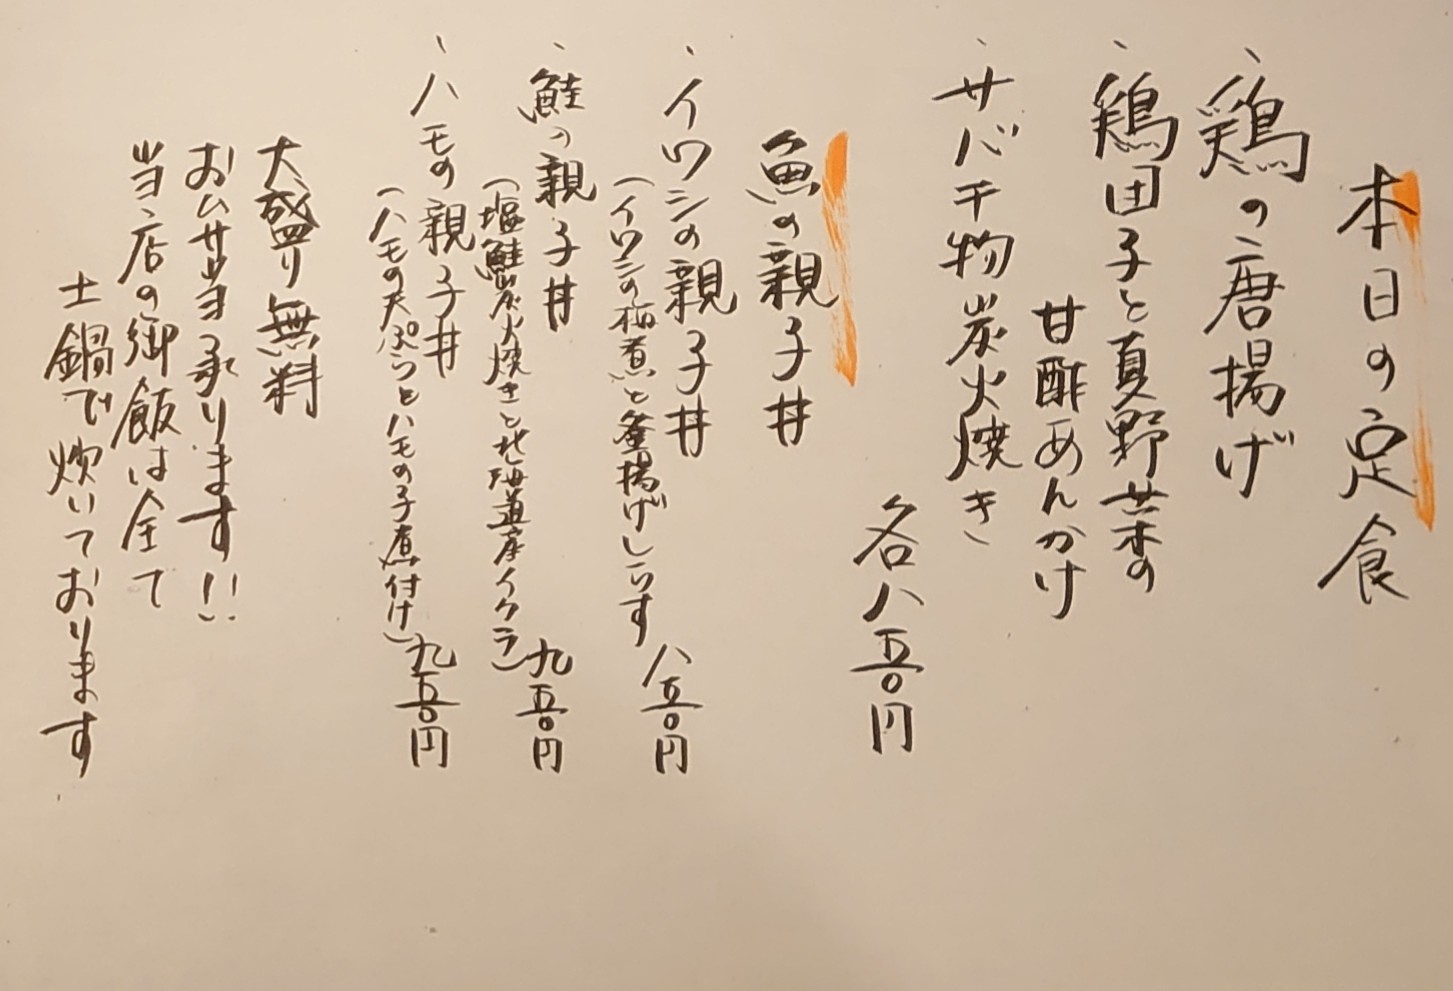 本日の定食
、鶏の唐揚げ
、鶏団子と夏野菜の
甘酢あんかけ
、サバ干物炭火焼き
各八五〇円
魚の親子丼
、イワシの親子丼 八五〇円
(イワシの梅煮と釜揚げしらす
、鮭の親子丼 九五〇円
(塩鮭炭火焼きと北海道産イクラ)
、ハモの親子丼 九五〇円
(ハモの天ぷらとハモの子煮付け)
大盛り無料
お弁当承ります!!
当店の御飯は全て
土鍋で炊いております